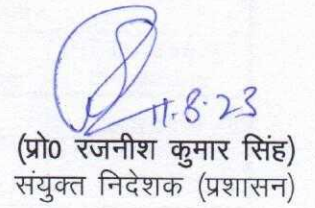 11.8.23
(प्रो0 रजनीश कुमार सिंह)
संयुक्त निदेशक (प्रशासन)